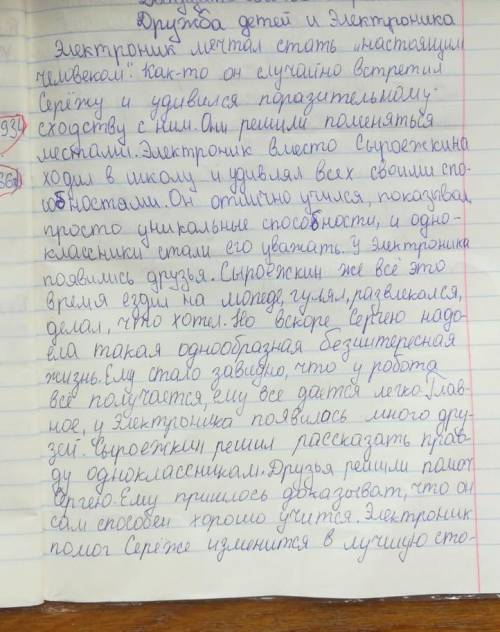 Дружба детей и Электроника
Электроник мечтал стать „настоящим
человеком". Как-то он случайно встретил
Серёжу и удивился поразительному
сходству с ним. Они решили поменяться
местами. Электроник вместо Сыроежкина
ходил в школу и удивлял всех своими спо-
собностями. Он отлично учился, показывал
просто уникальные способности, и одно-
классники стали его уважать. У Электроника
появились друзья. Сыроежкин же всё это
время ездил на мопеде, гулял, развлекался,
делал, что хотел. Но вскоре Сергею надо-
ела такая однообразная безинтересная
жизнь. Ему стало завидно, что у робота
всё получается, ему все дается легко. Глав-
ное, у Электроника появилась много дру-
зей. Сыроежкин решил рассказать прав-
ду одноклассникам. Друзья решили помоч
Сергею. Ему пришлось доказыват, что он
сам способен хорошо учится. Электроник
помог Серёже изменится в лучшую сто-